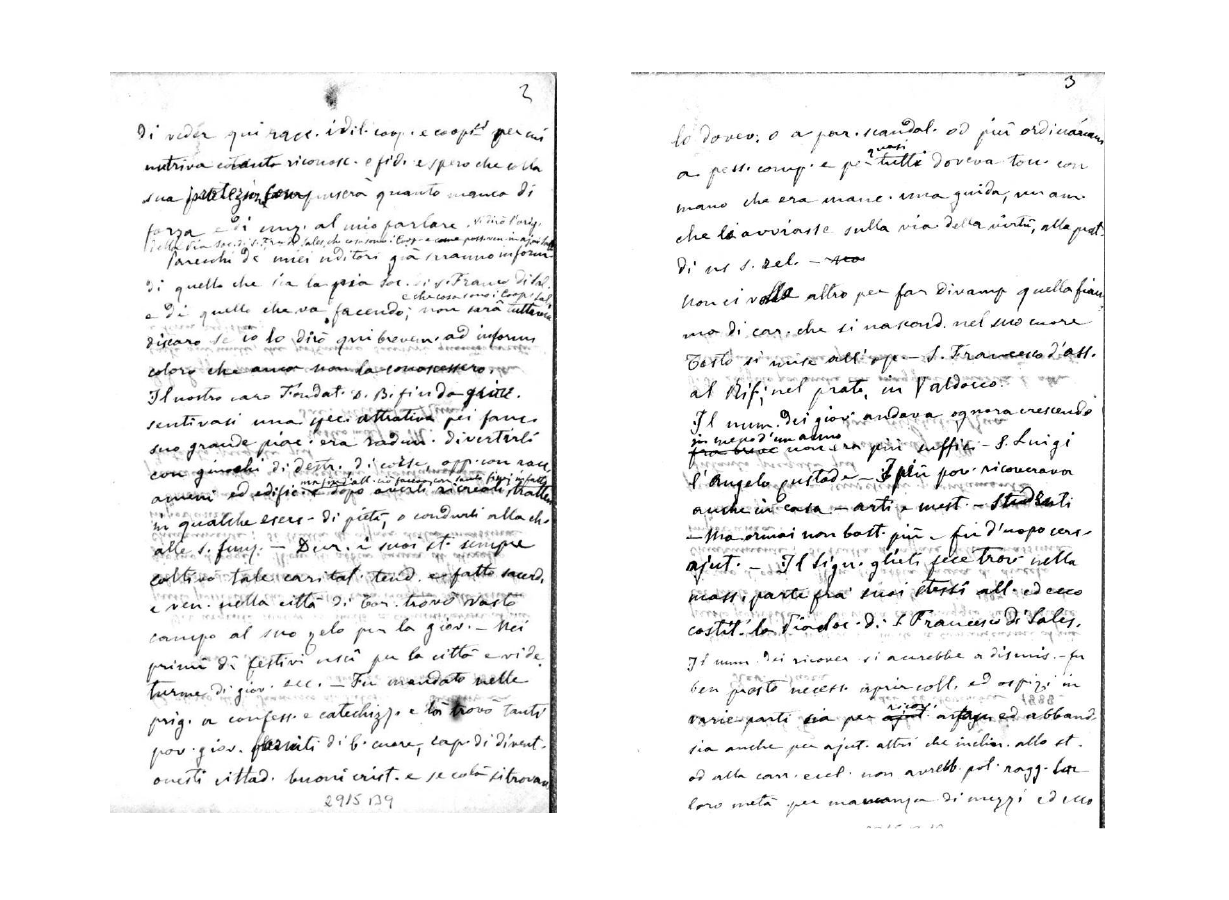 2
di veder qui racc. i dil. coop. e coop. per cui
nutriva cotanto riconosc. e fid. e spero che colla
sua protezion quanto manca di
forza e di al mio parlare. Vi dirò l'orig.
della Pia Soc. di S. Fr. di Sales, che cosa sono i Coop. e come possono
Parecchi de' miei uditori già saranno inform.
di quello che sia la pia Soc. di S. Franc. di Sal.
e che cosa sono i Coop. Sal.
e di quello che va facendo; non sarà tuttavia
discaro se io lo dirò qui brevem. ad inform
coloro che anco non la conoscessero.
Il nostro caro Fondat. D. B. fin da giovz.
sentivasi una speci attrativa pei fanc.
suo grande piac. era radun. divertirli
con giuochi di destr. di corse, opp. con racc.
ameni ed edific. e dopo averli ricreati tratten
in qualche eserc. di pietà, o condurli alla ch.
alle s. funz. — Dur. i suoi st. sempre
coltivò tale carital. tend. e fatto sacerd.
e ven. nella città di Tor. trovò vasto
campo al suo zelo per la giov. — Nei
primi dì festivi uscì per la città e vide
turme di giov. ecc. — Fu mandato nelle
prig. a confess. e catechizz. e là trovò tanti
pov. giov. forniti di b. cuore, cap. di divent.
onesti cittad. buoni crist. e se colà si trovav
2915 B9
3
lo dovev. o a par. scandal. od più ordinariam
quasi
a pess. comp. e per tutti doveva ton. con
mano che era manc. una guida, un am.
che li avviasse sulla via della virtù, alla prat.
di us s. zel. —
Non ci volle altro per far divamp. quella fiam
ma di car. che si nascond. nel suo cuore
Tosto si mise all'op. — S. Francesco d'Ass.
al Rif., nel prato, in Valdocco.
Il num. dei giov. andava ognora crescendo
in meno d'un anno
fra breve non era più suffic. — S. Luigi
l'Angelo custode — I più pov. ricoverava
anche in casa — arti e mest. — Studenti
— Ma ormai non bast. più — fu d'uopo cerc.
ajut. — Il Sign. glieli fece trov. nella
mass. parte fra suoi stessi all. ed ecco
costit. la Pia Soc. di S. Francesco di Sales.
Il num. dei ricover. si accrebbe a dismis. — fu
ben presto necess. aprir coll. ed ospizi in
ricov.
varie parti sia per ajut. ed abband.
sia anche per ajut. altri che inclin. allo st.
od alla carr. eccl. non avrebb. pot. ragg.
loro metà per mancanza di mezzi ed ecco